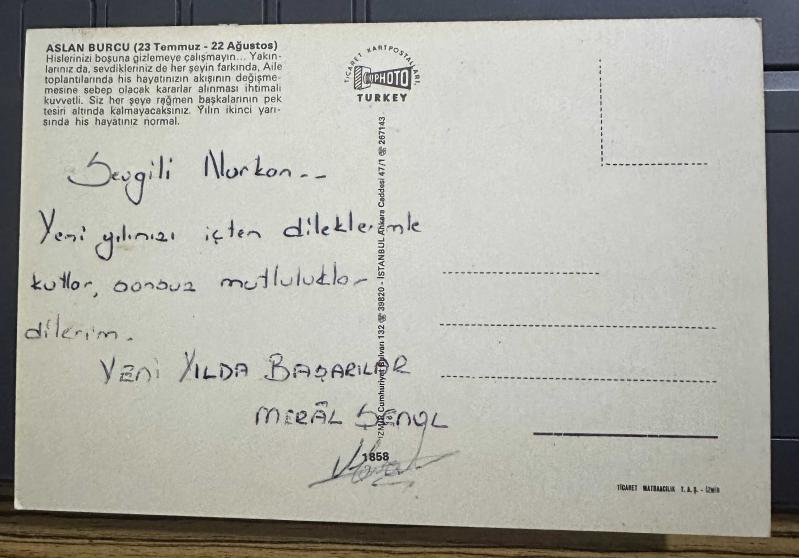 ASLAN BURCU (23 Temmuz - 22 Ağustos)
Hislerinizi boşuna gizlemeye çalışmayın... Yakın-
larınız da, sevdikleriniz de her şeyin farkında, Aile
toplantılarında his hayatınızın akışının değişme-
mesine sebep olacak kararlar alınması ihtimali
kuvvetli. Siz her şeye rağmen başkalarının pek
tesiri altında kalmayacaksınız. Yılın ikinci yarı-
sında his hayatınız normal.
TİCARET KARTPOSTALLARI
PHOTO
TURKEY
Sevgili Nurkan..
Yeni yılınızı içten dileklerimle
kutlar, sonsuz mutluluklar
dilerim.
YENİ YILDA BAŞARILAR
MERÂL ŞENOL
İZMİR Cumhuriyet Bulvarı 132 ☎ 39820 - İSTANBUL Ankara Caddesi 47/1 ☎ 267143
1858
TİCARET MATBAACILIK T.A.Ş. - İzmir